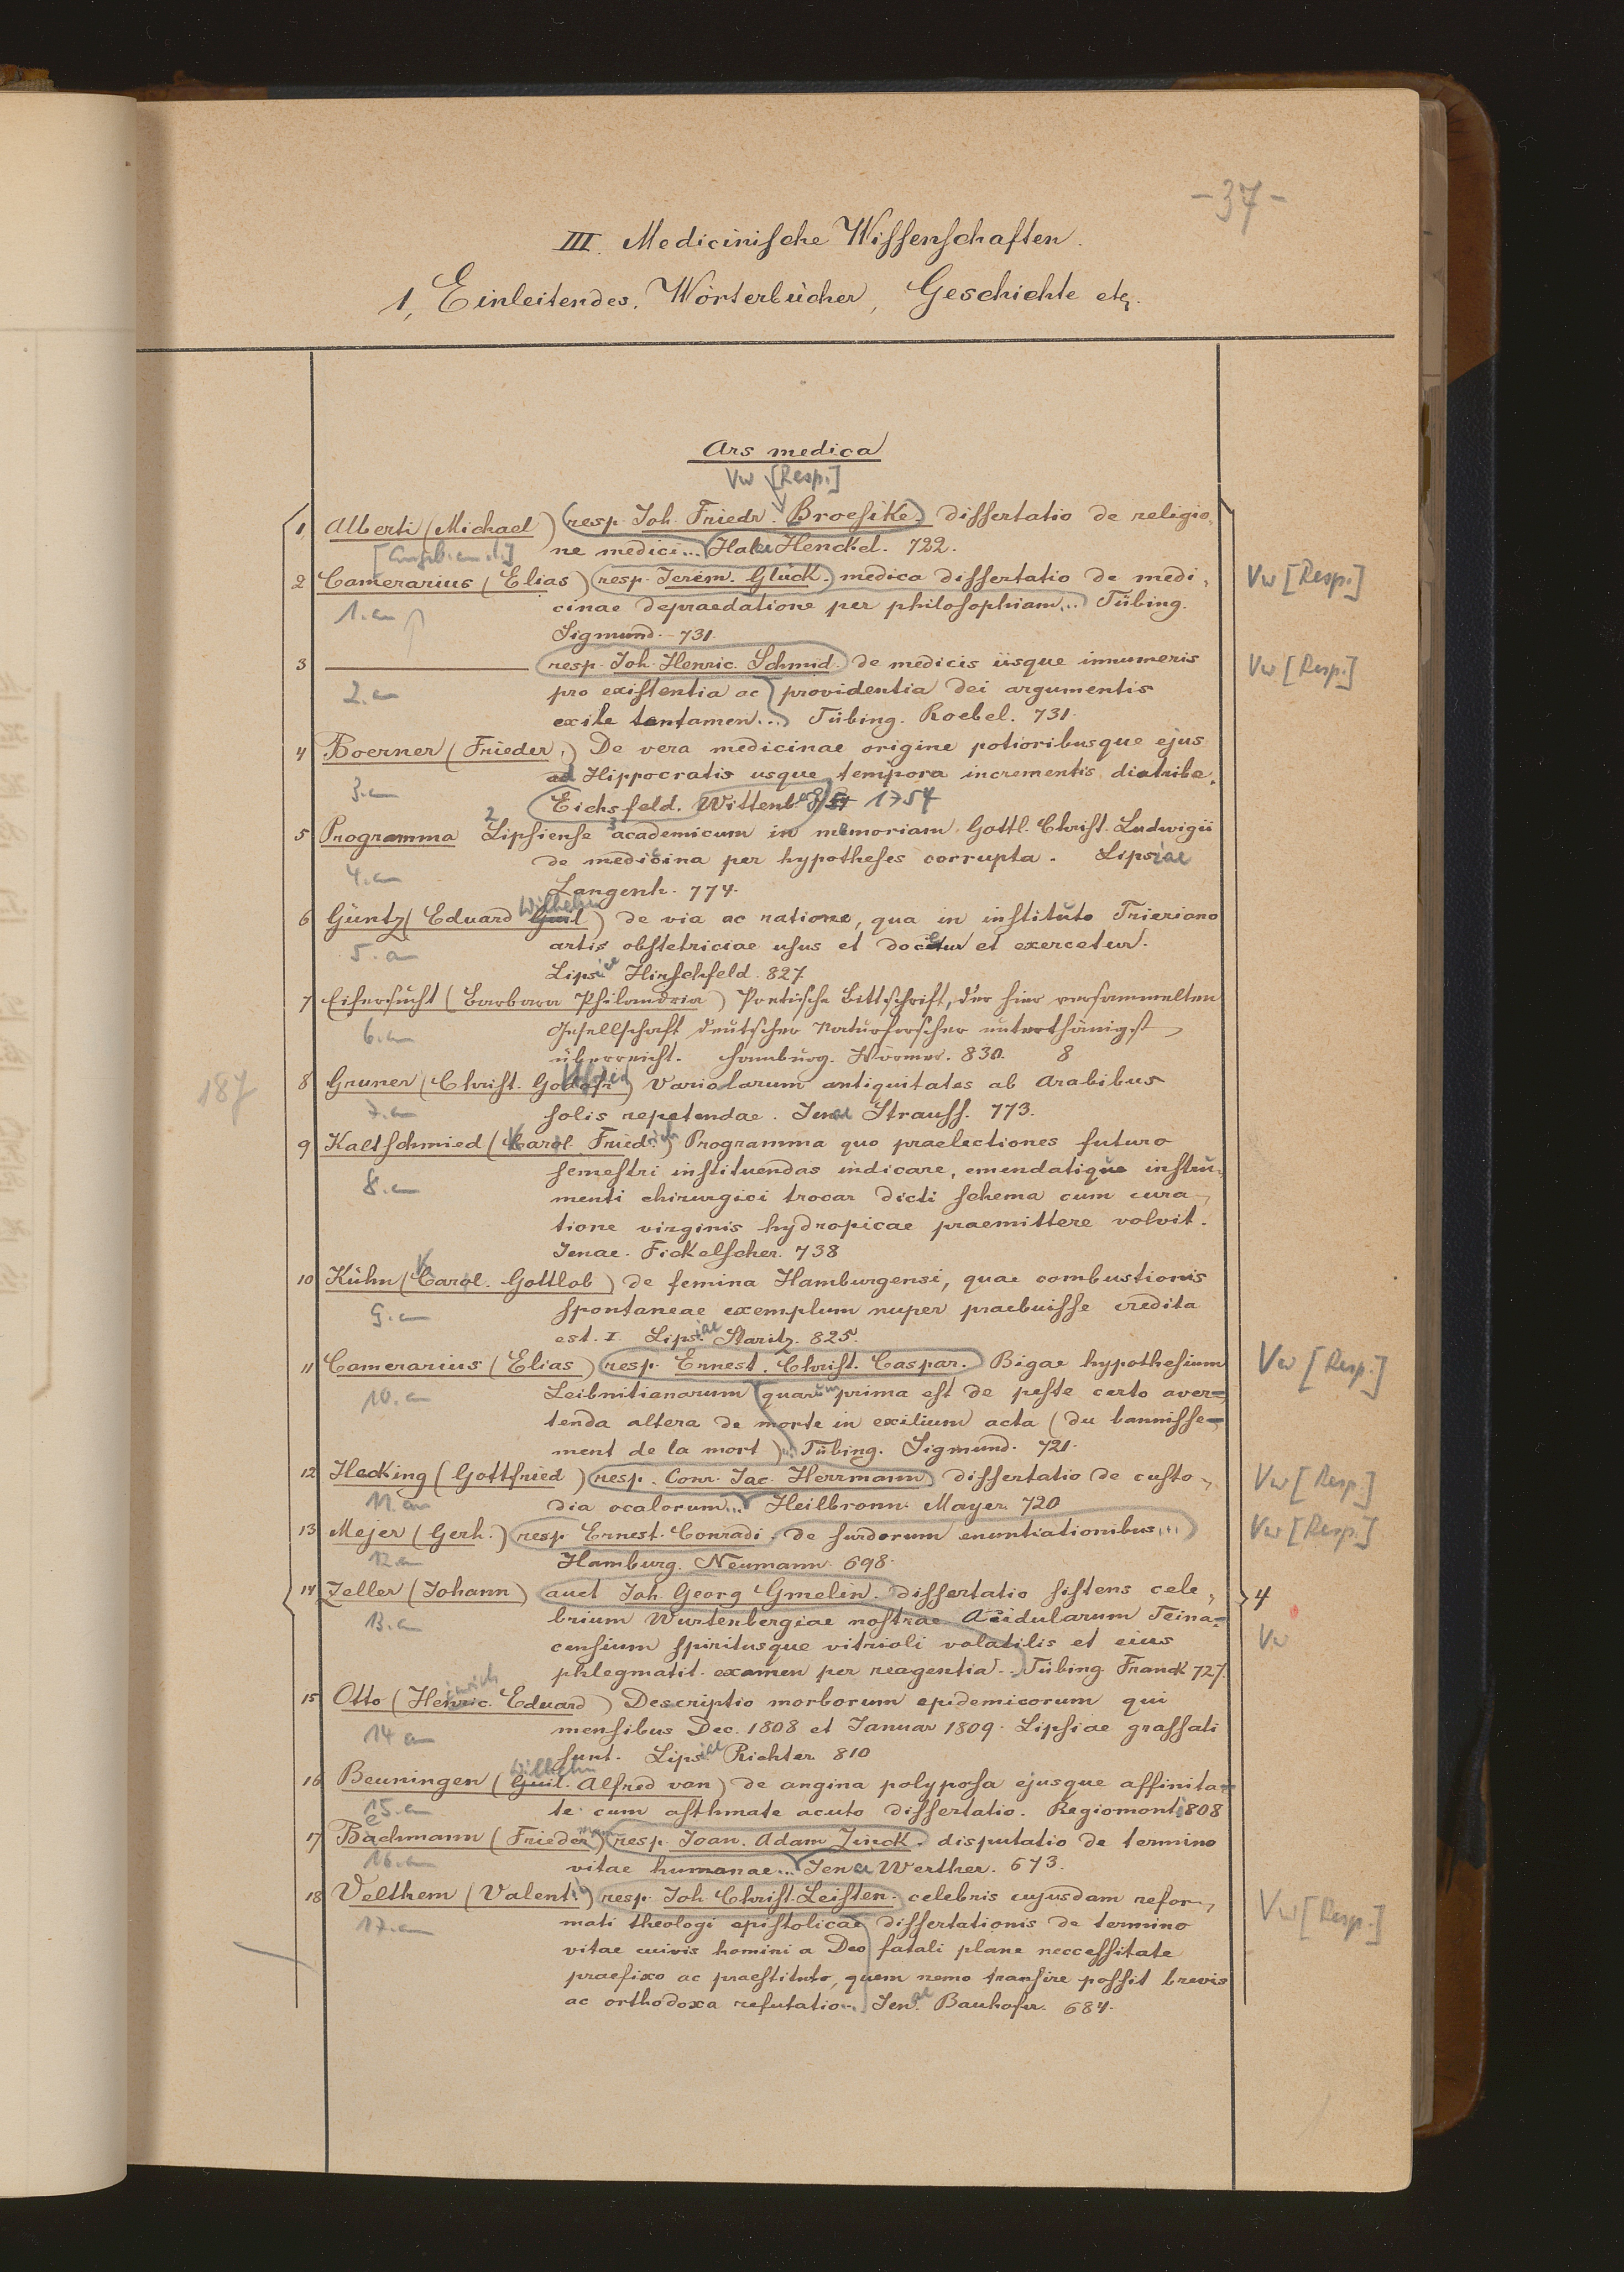 -37-
III. Medicinische Wissenschaften.
1, Einleitendes, Wörterbücher, Geschichte etc.
Ars medica
Vw [Resp.]
1 Alberti (Michael) (resp. Joh. Friedr. Broesike.) dissertatio de religio-
ne medici... Halae Henckel. 722.
2 Camerarius (Elias) (resp. Jerem. Glück.) medica dissertatio de medi- Vw [Resp.]
1.an cinae depraedatione per philosophiam... Tübing.
Sigmund. 731.
3 ——— (resp. Joh. Henric. Schmid.) de medicis iisque innumeris Vw [Resp.]
2.an pro existentia ac providentia dei argumentis
exile tentamen... Tübing. Roebel. 731.
4 Boerner (Frieder.) De vera medicinae origine potioribusque ejus
ad Hippocratis usque tempora incrementis diatribe.
3.an Eichsfeld. Wittenberg 1754
5 Programma Lipsiense academicum in memoriam Gottl. Christ. Ludwigii
de medicina per hypotheses corrupta. Lipsiae
4.an Langenh. 774.
6 Güntz (Eduard Guil Wilhelm) de via ac ratione, qua in instituto Trieriano
artis obstetriciae usus et docetur et exercetur.
5.an Lipsiae Hirschfeld. 827.
7 Eifersucht (Barbara Philandria) Poetische Bittschrift, der hier versammelten
6.an Gesellschaft deutscher Naturforscher unterthänigst
überreicht. Hamburg. Wörmer. 830. 8
187
8 Gruner (Christ. Gottfried) Variolarum antiquitates ab Arabibus
7.an solis repetendae. Jenae Strauss. 773.
9 Kaltschmied (Karl Friedrich) Programma quo praelectiones futuro
semestri instituendas indicare, emendatique instru-
8.an menti chirurgici trocar dicti schema cum cura-
tione virginis hydropicae praemittere volvit.
Jenae. Fickelscher. 738
10 Kühn (Karl Gottlob) de femina Hamburgensi, quae combustionis
9.an spontaneae exemplum nuper praebuisse credita
est. I. Lipsiae Staritz. 825.
11 Camerarius (Elias) (resp. Ernest. Christ. Caspar.) Bigae hypothesium Vw [Resp.]
10.an Leibnitianarum quarum prima est de peste certo aver-
tenda altera de morte in exilium acta (du bannisse-
ment de la mort)... Tübing. Sigmund. 721.
12 Hecking (Gottfried) (resp. Conr. Jac. Herrmann) dissertatio de custo- Vw [Resp.]
11.an dia ocalorum... Heilbronn. Mayer. 720
13 Mejer (Gerh.) (resp. Ernest. Conradi. de surdorum enuntiationibus... Vw [Resp.]
12.an Hamburg. Neumann. 698.
14 Zeller (Johann) auct Joh. Georg Gmelin. dissertatio sistens cele- 4
13.an brium Wurtenbergiae nostrae Acidularum Teina-
censium spiritusque vitrioli volatilis et eius Vw
phlegmatit. examen per reagentia... Tübing. Franck 727.
15 Otto (Heinrich Eduard) Descriptio morborum epidemicorum qui
14 an mensibus Dec. 1808 et Januar 1809. Lipsiae grassati
sunt. Lipsiae Richter 810
16 Beuningen (Guil. Wilhelm Alfred van) de angina polyposa ejusque affinita-
15.an te cum asthmate acuto dissertatio. Regiomonti 808
17 Bechmann (Friedemann) (resp. Joan. Adam Zinck.) disputatio de termino
16.an vitae humanae... Jenae Werther. 673.
18 Velthem (Valent.) (resp. Joh. Christ. Leisten. celebris cujusdam refor- Vw [Resp.]
17.an mati theologi epistolicae dissertationis de termino
vitae cuivis homini a Deo fatali plane neccessitate
praefixo ac praestituto, quem nemo transire possit brevis
ac orthodoxa refutatio... Jenae Bauhofer. 684.